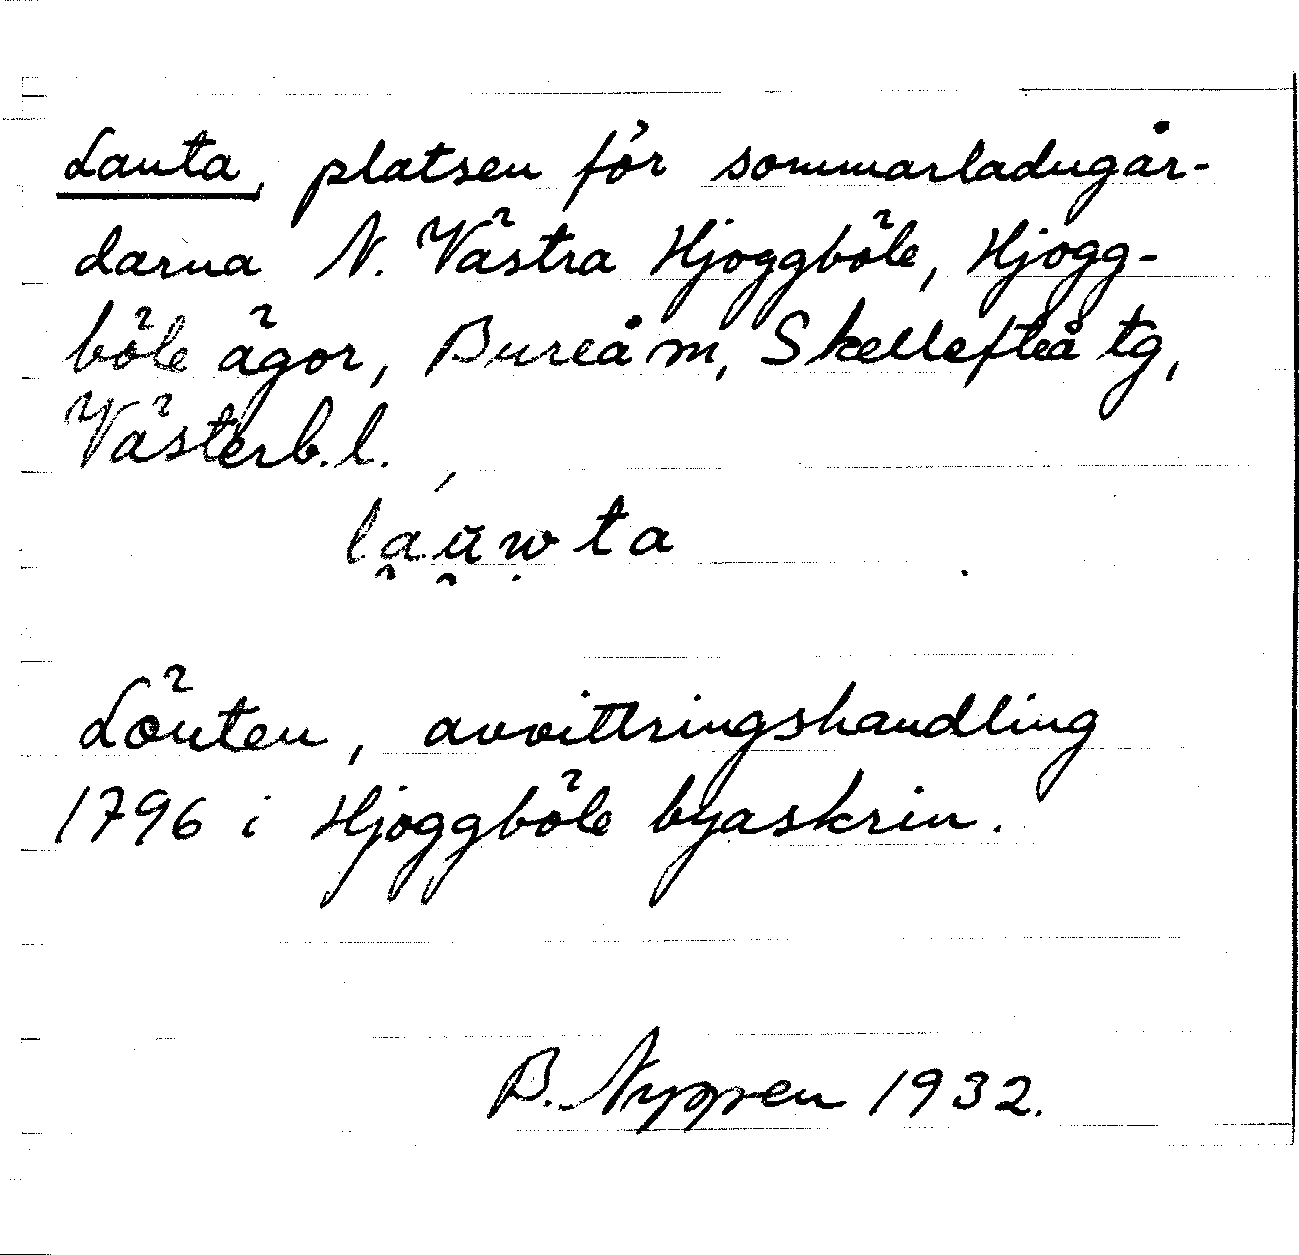 Lauta, platsen för sommarladugår-
darna N. Västra Hjoggböle, Hjogg-
böle ägor, Bureå m, Skellefteå tg,
Västerb.l.
Löuten, avvittringshandling
1796 i Hjoggböle byaskrin.
B. Nyppen 1932.